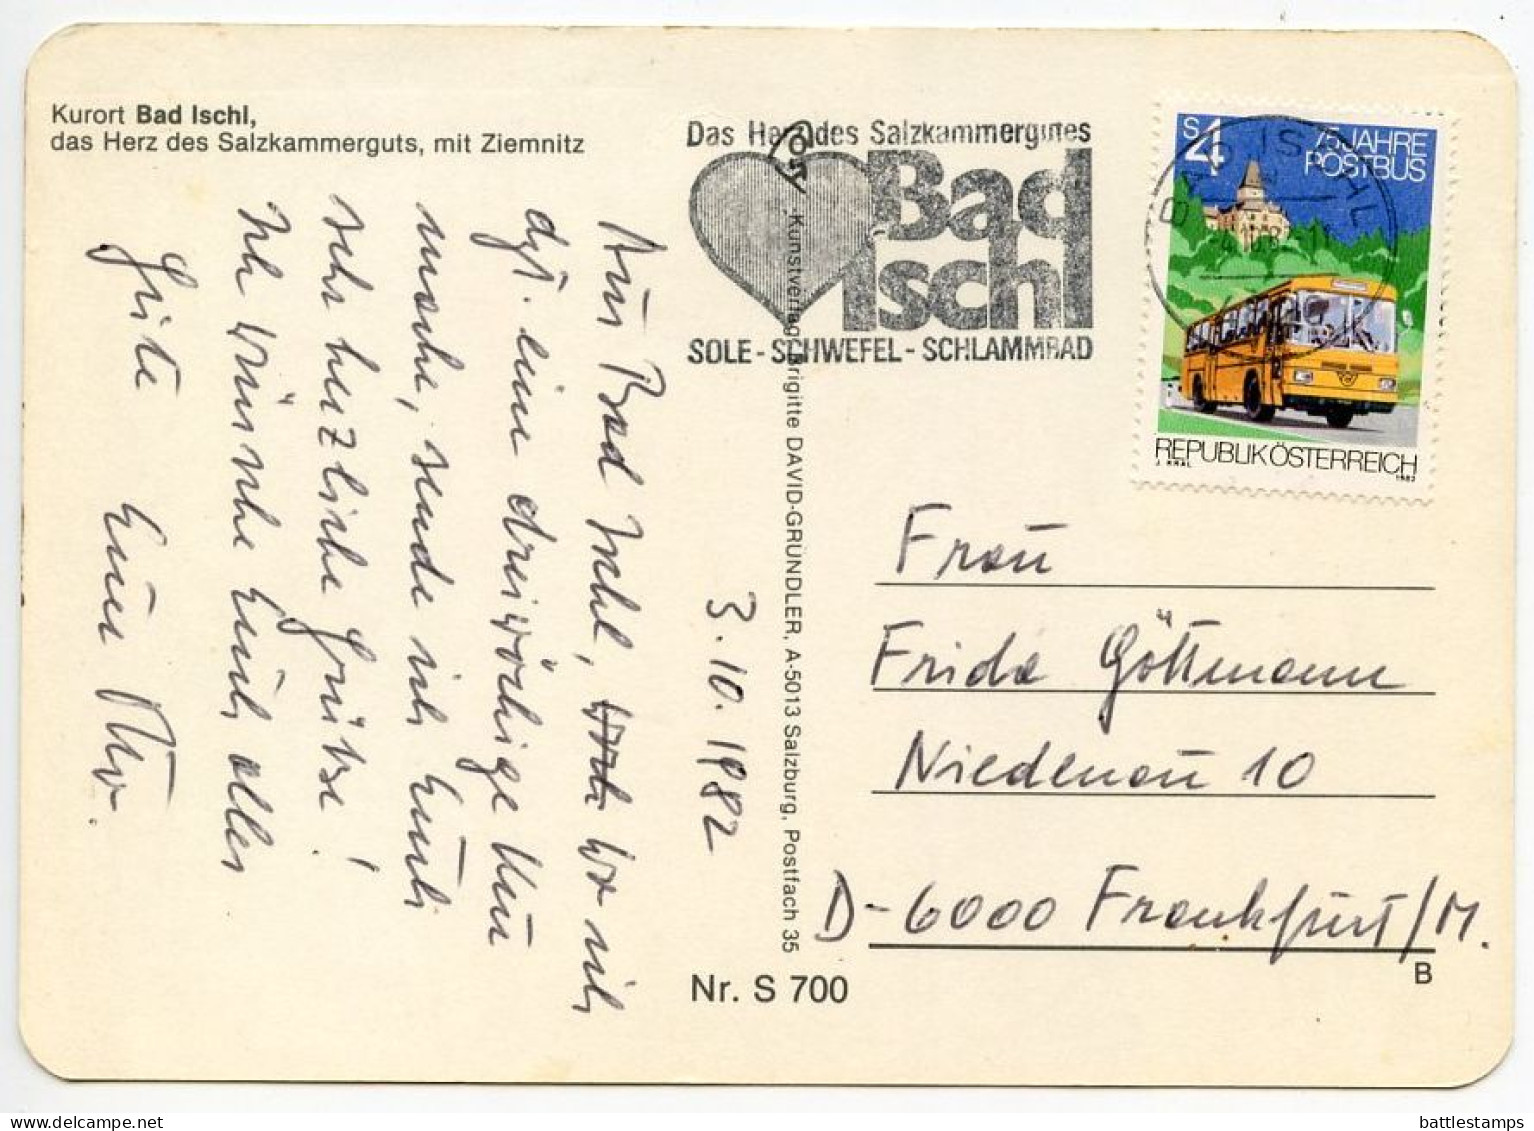 Kurort Bad Ischl,
das Herz des Salzkammerguts, mit Ziemnitz
Das Herz des Salzkammergutes
Bad
Ischl
SOLE - SCHWEFEL - SCHLAMMBAD
S 4
75 JAHRE
POSTBUS
BAD ISCHL
REPUBLIK ÖSTERREICH
J. KRAL 1982
3. 10. 1982
Aus Bad Ischl, wo ich
dzt. eine dreiwöchige Kur
mache, sende ich Euch
sehr herzliche Grüße!
Ich wünsche Euch alles
Gute Euer
Kunstverlag Brigitte DAVID-GRÜNDLER, A-5013 Salzburg, Postfach 35
Nr. S 700
Frau
Frida Göttmann
Niedenau 10
D-6000 Frankfurt/M.
B
battlestamps